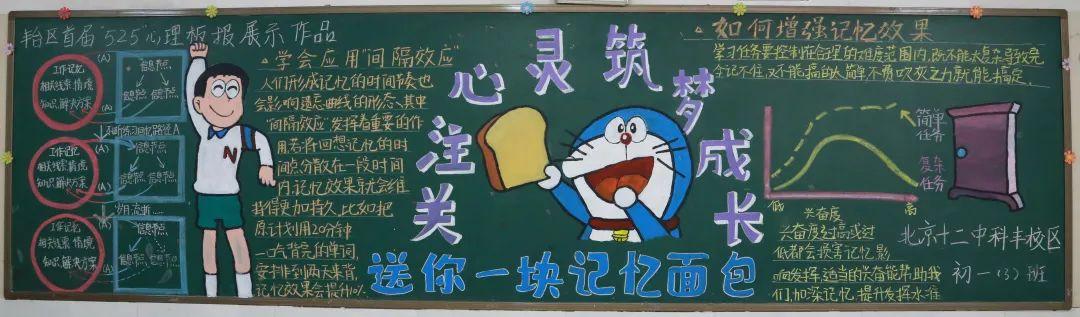 丰台区首届"525"心理板报展示作品
工作记忆
相关线索情境
知识解决方案
(A)
信息节点
信息节点
信息节点
(A)
不断练习回忆路径A
工作记忆
相关线索情境
知识解决方案
(A)
信息节点
信息节点
信息节点
(A)
岁月流逝……
工作记忆
相关线索情境
知识解决方案
(A)
信息节点
信息节点
信息节点
N
学会应用"间隔效应"
人们形成记忆的时间节奏也
会影响遗忘曲线的形态、其中
"间隔效应"发挥着重要的作
用若将回想记忆的时
间分散在一段时间
内,记忆效果就能维
持得更加持久,比如把
原计划用20分钟
一口气背完的单词,
安排到两天来背,
记忆效果会提升
关注心灵筑梦成长
送你一块记忆面包
如何增强记忆效果
学习任务要控制在合理的难度范围内,既不能太复杂导致完
全记不住,又不能搞的太简单不费吹灰之力就能搞定。
简单
任务
复杂
任务
低
兴奋度
高
兴奋度过高或过
低都会损害记忆影
响发挥,适当的兴奋能帮助我
们加深记忆,提升发挥水准
北京十二中科丰校区
初一(3)班